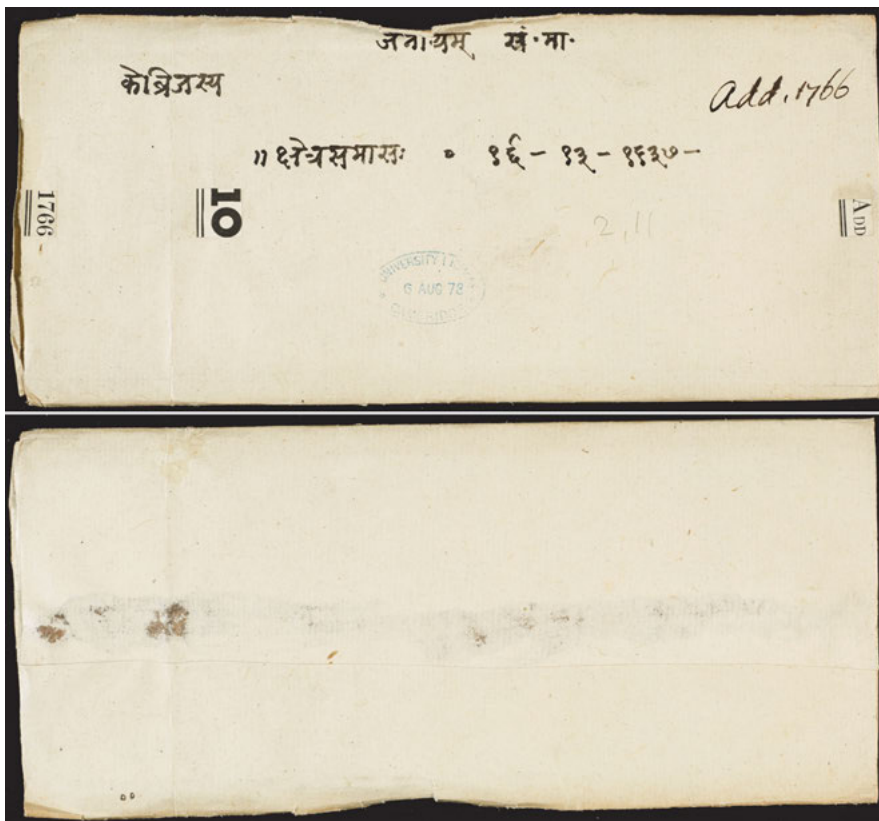 खं · मा ·
केंब्रिजस्य
Add. 1766
॥ क्षेत्रसमासः ० १६ - १३ - १६३७ -
1766
10
ADD
2, 11
UNIVERSITY
6 AUG 78